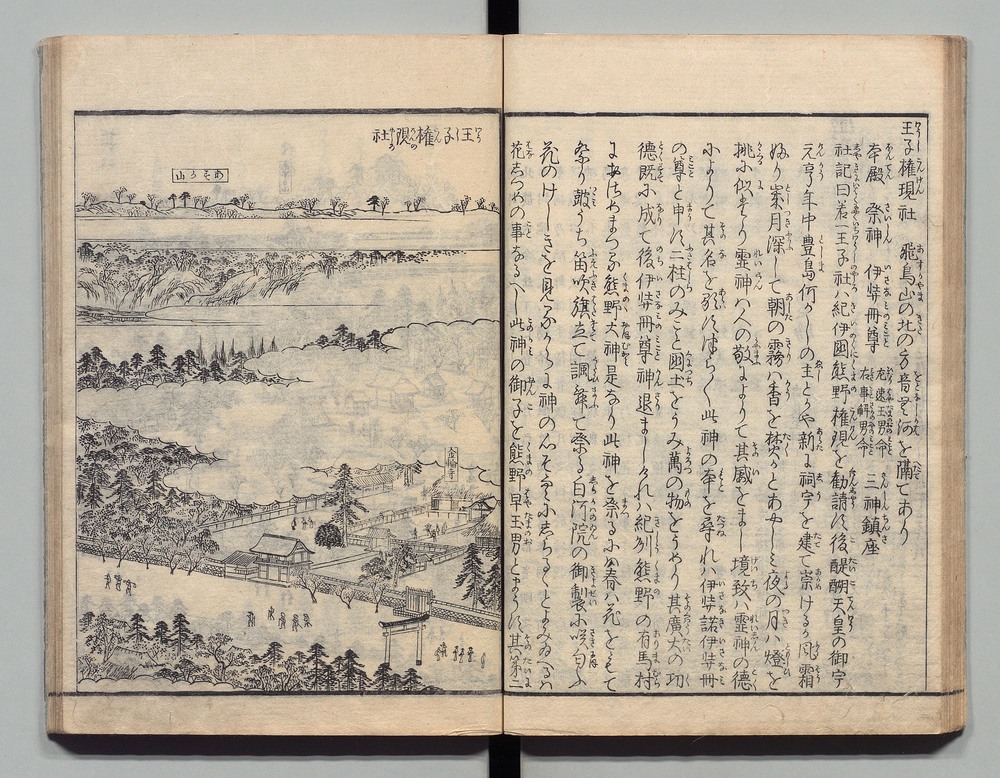 王子権現社　飛鳥山の北の方音無河を隔てあり
本殿　祭神　伊弉冊尊　右速玉男命　左事解男命　三神鎮座
社記曰若一王子社ハ紀伊國熊野権現を勧請す後醍醐天皇の御宇
元亨年中豊島何がしの主とかや新に祠宇を建て崇ける風霜
ふり業月深して朝の霧ハ香を焚かとあやしミ夜の月ハ燈を
挑に似たり霊神ハ人の敬によりて其威をまし境致ハ霊神の徳
によりて其名を
此神の本を尋れハ伊弉諾伊弉冊
の尊と申す二柱のみこと国土をうみ萬の物をうめり其廣大の功
徳既に成て後伊弉冊尊神退ましけれハ紀刕熊野の有馬村
にまつる熊野大神是なり此神を祭るにハ春ハ花をもて
祭り鼓うち笛吹旗立て諷舞て祭る白河院の御製に咲匂ふ
花のけしきを見るからに神の心そそらにしらるゝとよみ給へるハ
花しつめの事なるへし此神の御子を熊野早玉男とまうす其第二
王子権現社
あすか山
金輪寺